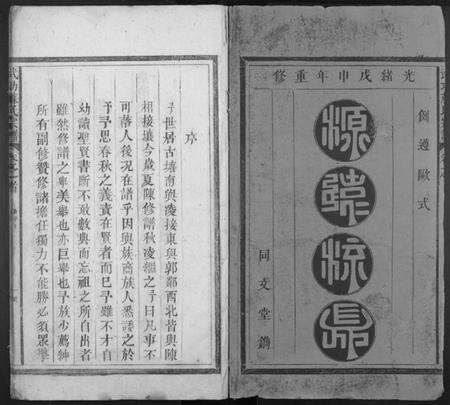 光緒戊申年重修
倣遵歐式
源遠流長
同文堂鐫
序
予世居古墻南與凌接東與郭鄰西北皆與陳
相接壤今歲夏陳修譜秋凌繼之予曰凡事不
可落人後况在諸乎因與族商族人悉諉之於
予予思春秋之義責在賢者而巳予雖不才自
幼讀聖賢書斷不敢數典而忘祖之所自出者
雖然修譜之舉美舉也亦巨舉也予族少薦紳
所有副修贊修諸擔任獨力不能勝必須眾擎